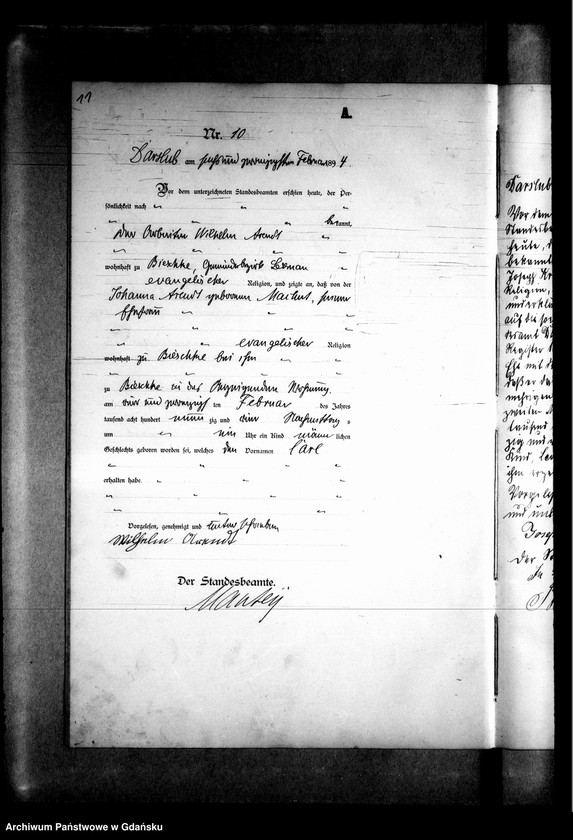 11
A.
Nr. 10
Darslub am sechs und zwanzigsten Februar 1894.
Vor dem unterzeichneten Standesbeamten erschien heute, der Per-
sönlichkeit nach
bekannt,
der Arbeiter Wilhelm Arendt
wohnhaft zu Bieschke, Gemeindebezirk
evangelischer Religion, und zeigte an, daß von der
Johanna Arendt geborenen, seiner
Ehefrau
evangelischer Religion
wohnhaft zu Bieschke bei ihm
zu Bieschke in der Wohnung.
am vier und zwanzigsten Februar des Jahres
tausend acht hundert neunzig und vier Nachmittags
um ein Uhr ein Kind männlichen
Geschlechts geboren worden sei, welches den Vornamen Carl
erhalten habe.
Vorgelesen, genehmigt und unterschrieben
Wilhelm Arendt
Der Standesbeamte.
Darslub
Vor dem
Standesbe
heute,
bekannt
Joseph
Religion,
und
auf die
Register
Ehe mit
daß er
tausend
zig und
Kind,
ihm
Vorgel
und
Der
Archiwum Państwowe w Gdańsku